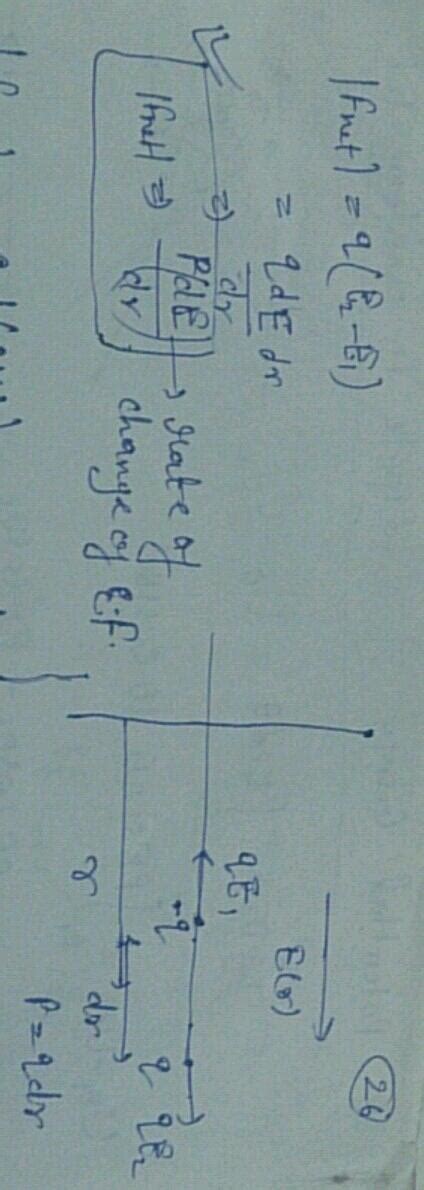 26
|Fnet| = q(E₂ - E₁)
= q dE/dr dr
⇒
|Fnet| ⇒ P(dE/dr) → rate of change of E.F.
E(r)
qE₁
-q
q
qE₂
r
dr
P = qdr